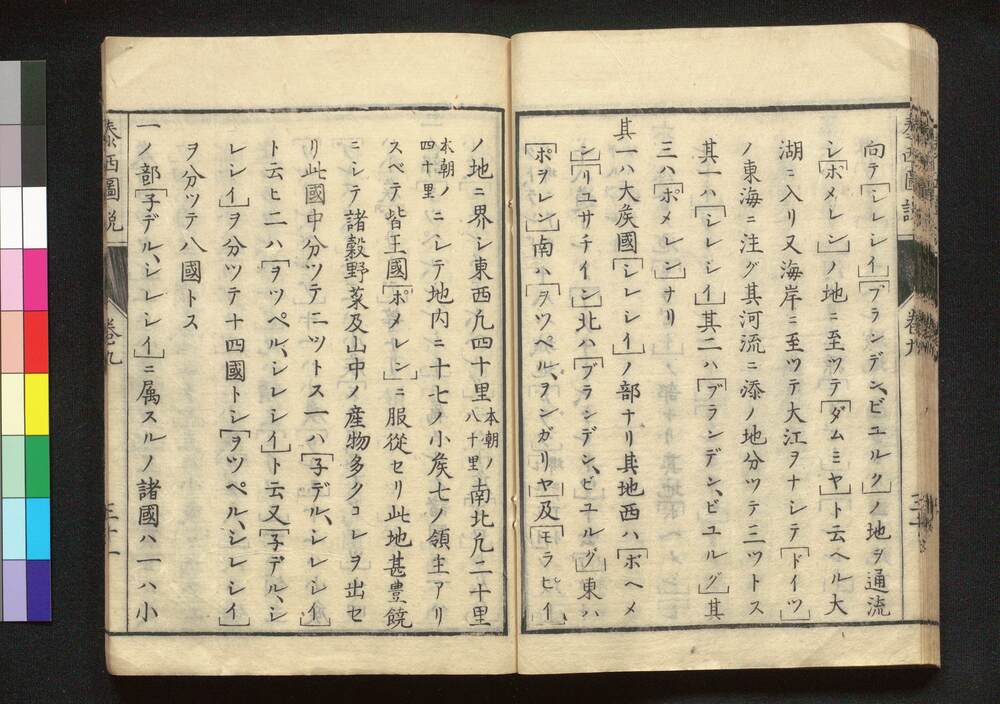 向テ「シレシイ」「ブランデン、ビユルク」ノ地ヲ通流
シ「ポメレン」ノ地ニ至ツテ「ダムミヤ」ト云ヘル大
湖ニ入リ又海岸ニ至ツテ大江ヲナシテ「ドイツ」
ノ東海ニ注グ其河流ニ添ノ地分ツテ三ツトス
其一ハ「シレシイ」其二ハ「ブランデン、ビユルグ」其
三ハ「ポメレン」ナリ
其一ハ大矦國「シレシイ」ノ部ナリ其地西ハ「ボヘメ
ン」リユサチイン」北ハ「ブランデン、ビユルグ」東ハ
「ポヲレン」南ハ「ヲツペル、ヲンガリヤ」及「モラビイ」
ノ地ニ界シ東西凡四十里本朝ノ八十里南北凡二十里
本朝ノ四十里ニシテ地内ニ十七ノ小矦七ノ領主アリ
スベテ皆王國「ポメレン」ニ服從セリ此地甚豊饒
ニシテ諸穀野菜及山中ノ産物多クコレヲ出セ
リ此國中分ツテ二ツトス一ハ「子デル、シレシイ」
ト云ヒ二ハ「ヲツペル、シレシイ」ト云又「子デル、シ
レシイ」ヲ分ツテ十四國トシ「ヲツペル、シレシイ」
ヲ分ツテ八國トス
一ノ部「子デル、シレシイ」ニ属スルノ諸國ハ一ハ小
泰西圖説
卷九
三十一